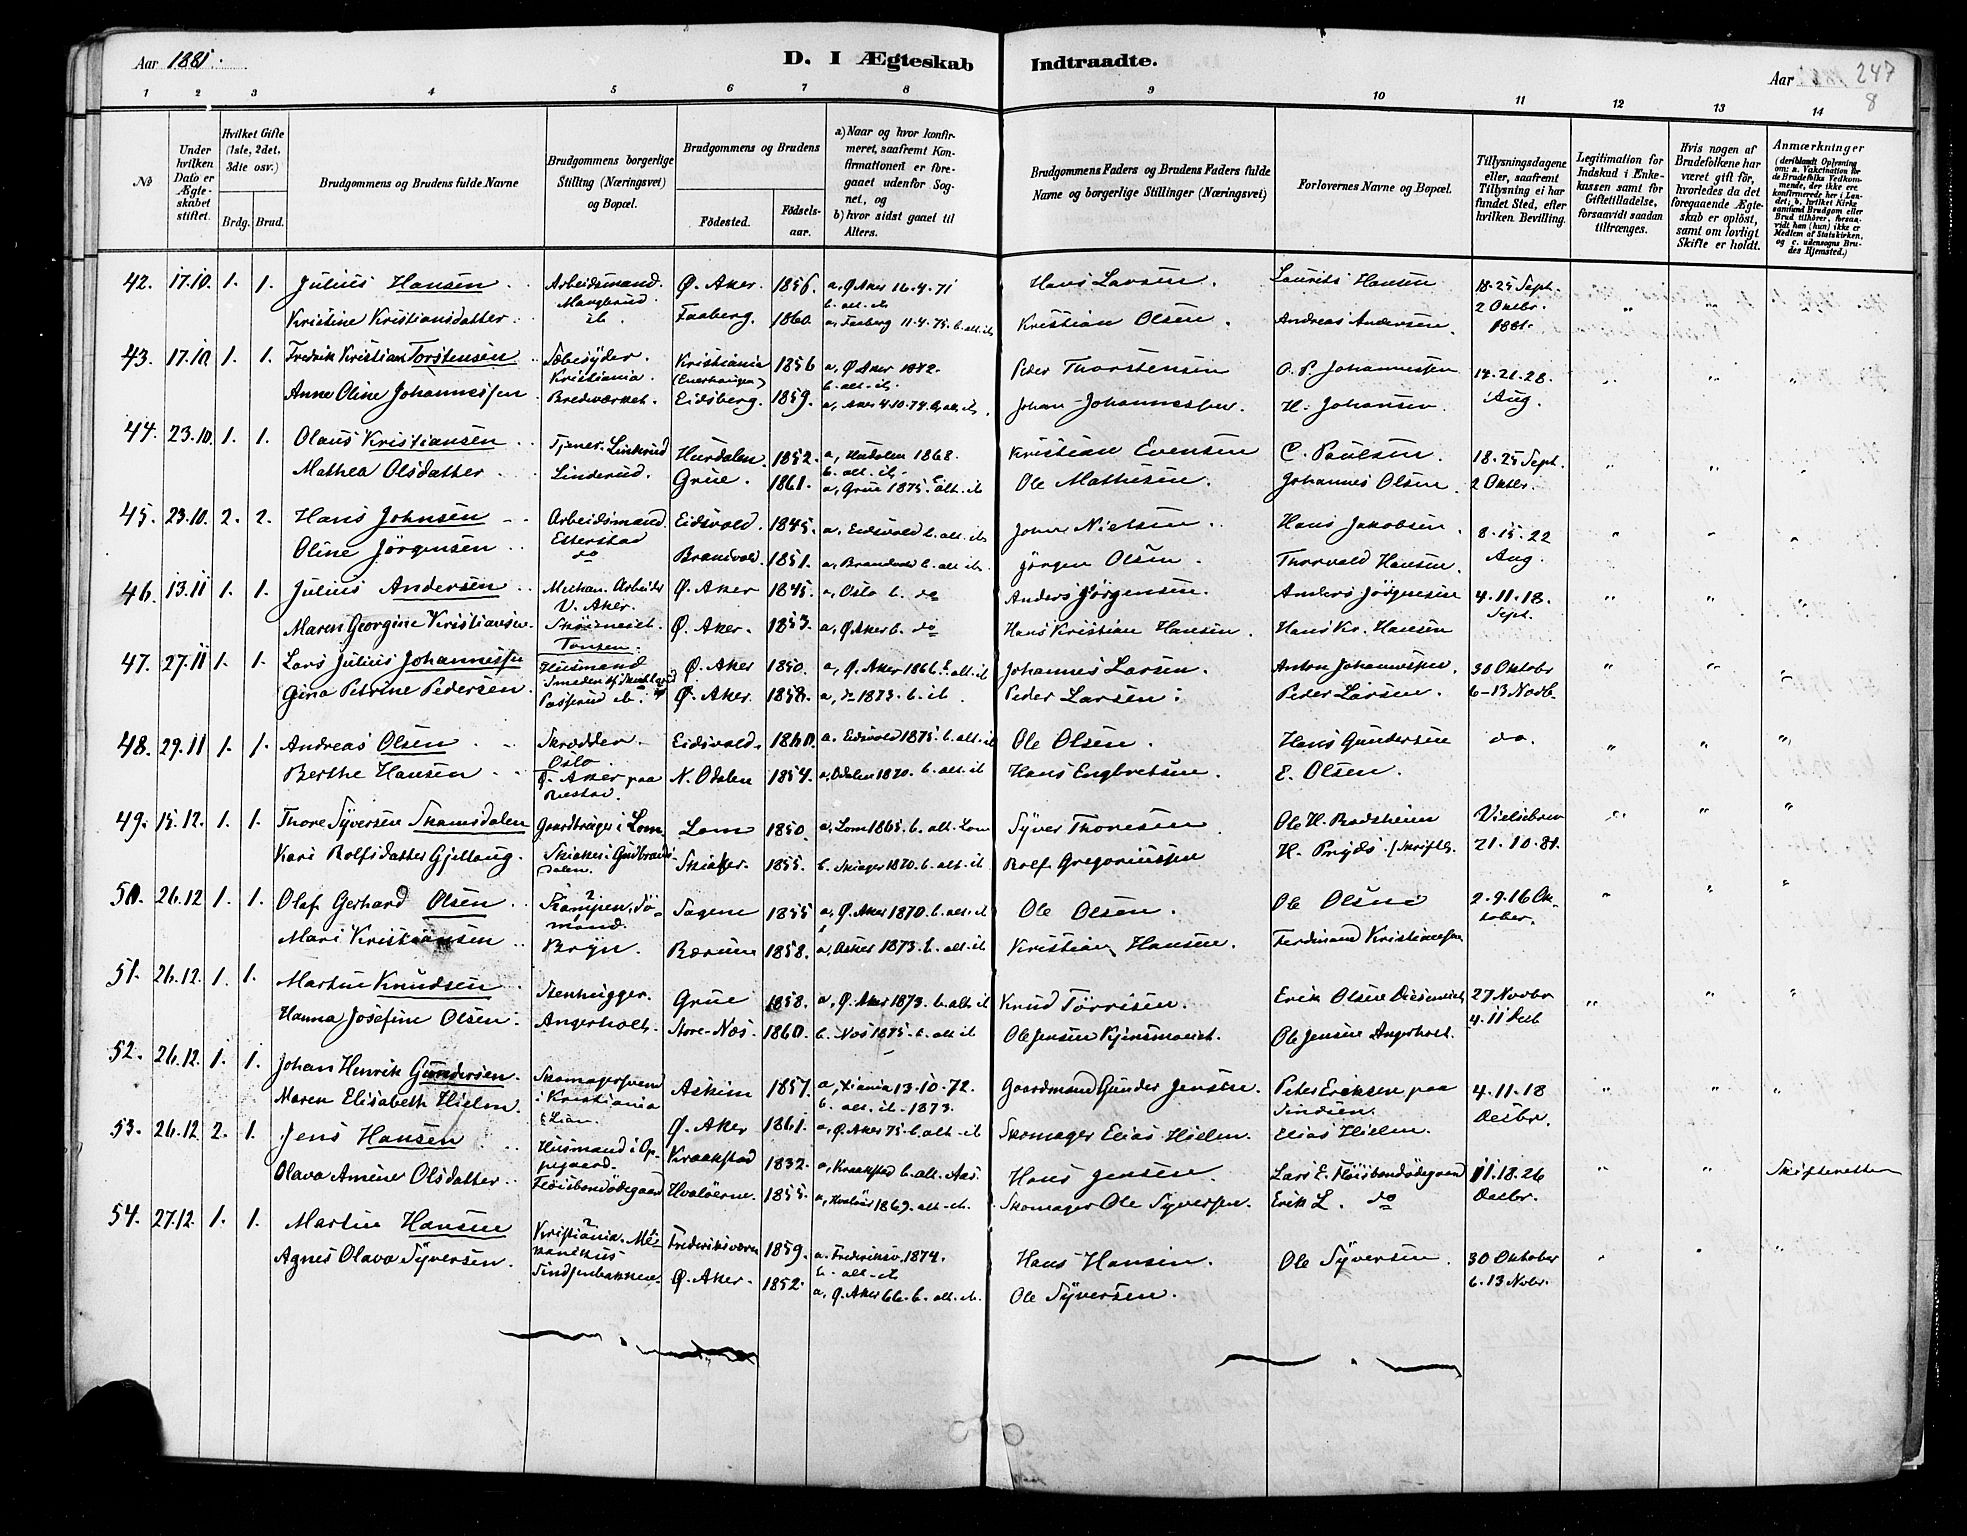 Aar 1881.
D. I Ægteskab Indtraadte.
Aar 247
8
1 2 3 4 5 6 7 8 9 10 11 12 13 14
No
Under hvilken Dato er Ægteskabet stiftet.
Hvilket Gifte (1ste, 2det, 3die osv.)
Brdg. Brud.
Brudgommens og Brudens fulde Navne
Brudgommens borgerlige Stilling (Næringsvei) og Bopæl.
Brudgommens og Brudens
Fødested. Fødselsaar.
a) Naar og hvor konfirmeret, saafremt Konfirmationen er foregaaet udenfor Sognet, og
b) hvor sidst gaaet til Alters.
Brudgommens Faders og Brudens Faders fulde Navne og borgerlige Stillinger (Næringsvei)
Forlovernes Navne og Bopæl.
Tillysningsdagene eller, saafremt Tillysning ei har fundet Sted, efter hvilken Bevilling.
Legitimation for Indskud i Enkekassen samt for Giftetilladelse, forsaavidt saadan tiltrænges.
Hvis nogen af Brudefolkene har været gift før, hvorledes da det foregaaende Ægteskab er opløst, samt om lovligt Skifte er holdt.
Anmærkninger (deriblandt Oplysning om: a. Vaccination for de Brudefolks Vedkommende, der ikke ere konfirmerede her i Landet; b. hvilket Kirkesamfund Brudgom eller Brud tilhører, forsaavidt han (hun) ikke er Medlem af Statskirken, og c. udensogns Brudes Hjemsted.)
42. 17.10. 1. 1. Julius Hansen. Arbeidsmand. Ø. Aker. 1856. a, Ø Aker 16.4.71 b. alt. ib Hans Larsen. Laurits Hansen 18-25 Sept.
Kristine Kristiansdatter. ib. Faaberg. 1860. a, Faaberg 11.4.75. b. alt. ib Kristian Olsen. Andreas Andersen. 2 Oktbr. 1881.
43. 17.10. 1. 1. Fredrik Kristian Torstensen Sæbesyder. Kristiania. Kristiania 1856 a, Ø Aker 1872. b. alt. ib. Peder Thorstensen O. P. Johannessen 14-21-28.
Anne Oline Johannessen. Bredværket. Eidsberg. 1859. a, Aker 4.10.74. b. alt. ib. Johan Johannessen. H. Johansen. Aug.
44. 23.10. 1. 1. Olaus Kristiansen Tjener. Linderud Hurdalen. 1852. a, Hurdalen 1868. b. alt. ib. Kristian Evensen C. Paulsen. 18-25 Sept.
Mathea Olsdatter Linderud. Grue. 1861. a, Grue 1875. b. alt. ib Ole Mathesen. Johannes Olsen 2 Oktbr.
45. 23.10. 2. 2. Hans Johnsen Arbeidsmand Etterstad Eidsvold. 1845. a, Eidsvold b. alt. ib John Nielsen. Hans Jakobsen. 8-15-22
Oline Jörgensen do Brandvold. 1851. a, Brandvold b. alt. ib Jörgen Olsen. Thorvald Hansen. Aug.
46. 13.11 1. 1. Julius Andersen Mekan. Arbeider V. Aker. Ø. Aker 1845. a, Oslo b. do Anders Jörgensen. Anders Jörgensen 4.11.18.
Maren Georgine Kristiansen. Ø. Aker. 1853. a, Ø Aker b. do Hans Kristian Hansen. Hans Kr. Hansen Sept.
47. 27.11 1. 1. Lars Julius Johannessen Tonsen. Husmand Ø. Aker 1850. a, Ø. Aker 1866 b. alt. ib Johannes Larsen. Anton Johannessen. 30 Oktobr
Gina Petrine Pedersen. Ø. Aker. 1858. a, do 1873. b. ib. Peder Larsen. Peder Larsen. 6-13 Novb.
48. 29.11 1. 1. Andreas Olsen Skrædder. Oslo Eidsvold. 1860. a. Eidsvold 1875. b. alt. ib Ole Olsen. Hans Gundersen do.
Berthe Hansen Ø. Aker paa N. Odalen 1854. a, Odalen 1870. b. alt. ib Hans Engbretsen. E. Olsen.
49. 15.12. 1. 1. Thore Syversen Skamsdalen Gaardbruger i Lom Lom 1850. a, Lom 1865. b. alt. Lom Syver Thoresen Ole H. Vielsebrev
Kari Rolfsdatter Gjeilaug. Skiaker i Gudbrandsdalen. Skiaker. 1855. b. Skiager 1870. b. alt. ib Rolf Gregoriussen H. Pryds 21.10.81.
50. 26.12 1. 1. Olaf Gerhard Olsen Kampen, Sömand. Sagene 1855 a, Ø. Aker 1870. b. alt. ib Ole Olsen. Ole Olsen 2.9.16 Oktober.
Mari Kristiansen Bryn. Bærum 1858. a, Asker 1873. b. alt. ib Kristian Hansen. Ferdinand Kristiansen
51. 26.12. 1. 1. Martin Knudsen Stenhugger. Grue 1858. a, Ø. Aker 1873. b. alt. ib Knud Törrisen. Erik Olsen 27 Novbr
Hanna Josefine Olsen. Angerholt. Store-Næs 1860. b. Næs 1875. b. alt. ib Ole Jensen Ole Jensen Angerholt. 4.11 Decb
52. 26.12. 1. 1. Johan Henrik Gundersen. Skomagersvend i Kristiania Askim 1857. a, Xiania 13-10-72. b. alt. ib. 1873. Gaardmand Gunder Jensen. Peter Ericksen paa Sindsen. 4.11.18
Maren Elisabeth Hielm. Lian. Ø. Aker 1861. a, Ø. Aker 75. b. alt. ib Skomager Elias Hielm. Elias Hielm. Decbr.
53. 26.12 2. 1. Jens Hansen Husmand i Oppegaard. Kraakstad 1832. a, Kraakstad b. alt. Aas. Hans Jensen Lars E. Flöisbondödegaard 11.18.26 Skifteretten
Olava Amine Olsdatter. Flöisbondödegaard Hvalöerne. 1855. a, Hvalöer 1869. alt. ib. Skomager Ole Syversen. Erik L. do Decbr.
54. 27.12. 1. 1. Martin Hansen Kristiania. Mekanikus Frederiksværn 1859. a. Frederiksv. 1874. b. alt. ib Hans Hansen. Ole Syversen. 30 Oktober
Agnes Olava Syversen. Sindsenbakken. Ø. Aker. 1852. a, Ø. Aker 66. b. alt. ib. Ole Syversen. 6.13 Novbr.